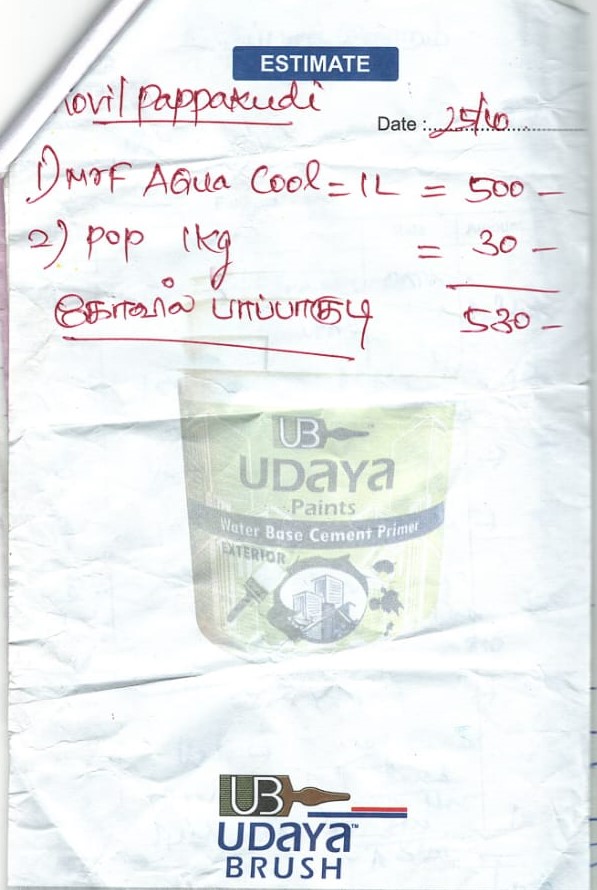 ESTIMATE
Kovil Pappakudi
Date : 25/10
1) MRF AQua Cool = 1L = 500 –
2) pop 1kg = 30 –
கோவில் பாப்பாகுடி 530 –
UB
UDAYA
Paints
Water Base Cement Primer
EXTERIOR
UB
UDAYA™
BRUSH